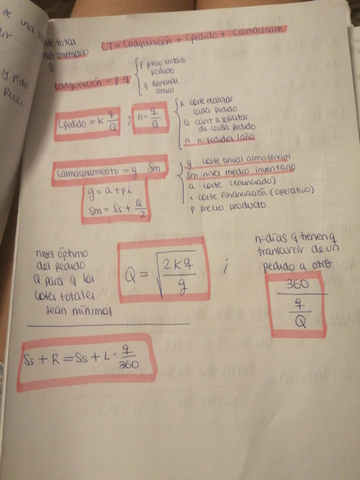 de una
CT = Cadquisición + Cpedido + Calmacenam
Cadquisición = p · q
p precio unitario
producto
q demanda
anual
Cpedido = K q/Q ; n = q/Q
K coste realizar
cada pedido
Q cant a solicitar
de cada pedido
n nº pedidos /año
Calmacenamiento = g · Sm
g = a + p i
Sm = Ss + Q/2
g coste anual almacenam
Sm nivel medio inventario
a coste
i coste financiación (operativo)
p precio producto.
nivel óptimo
del pedido
Q para q los
costes totales
sean mínimos
Q = √2Kq/g ;
n=días q tienen q
transcurrir de un
pedido a otro
360
q
Q
Ss + R = Ss + L · q/360